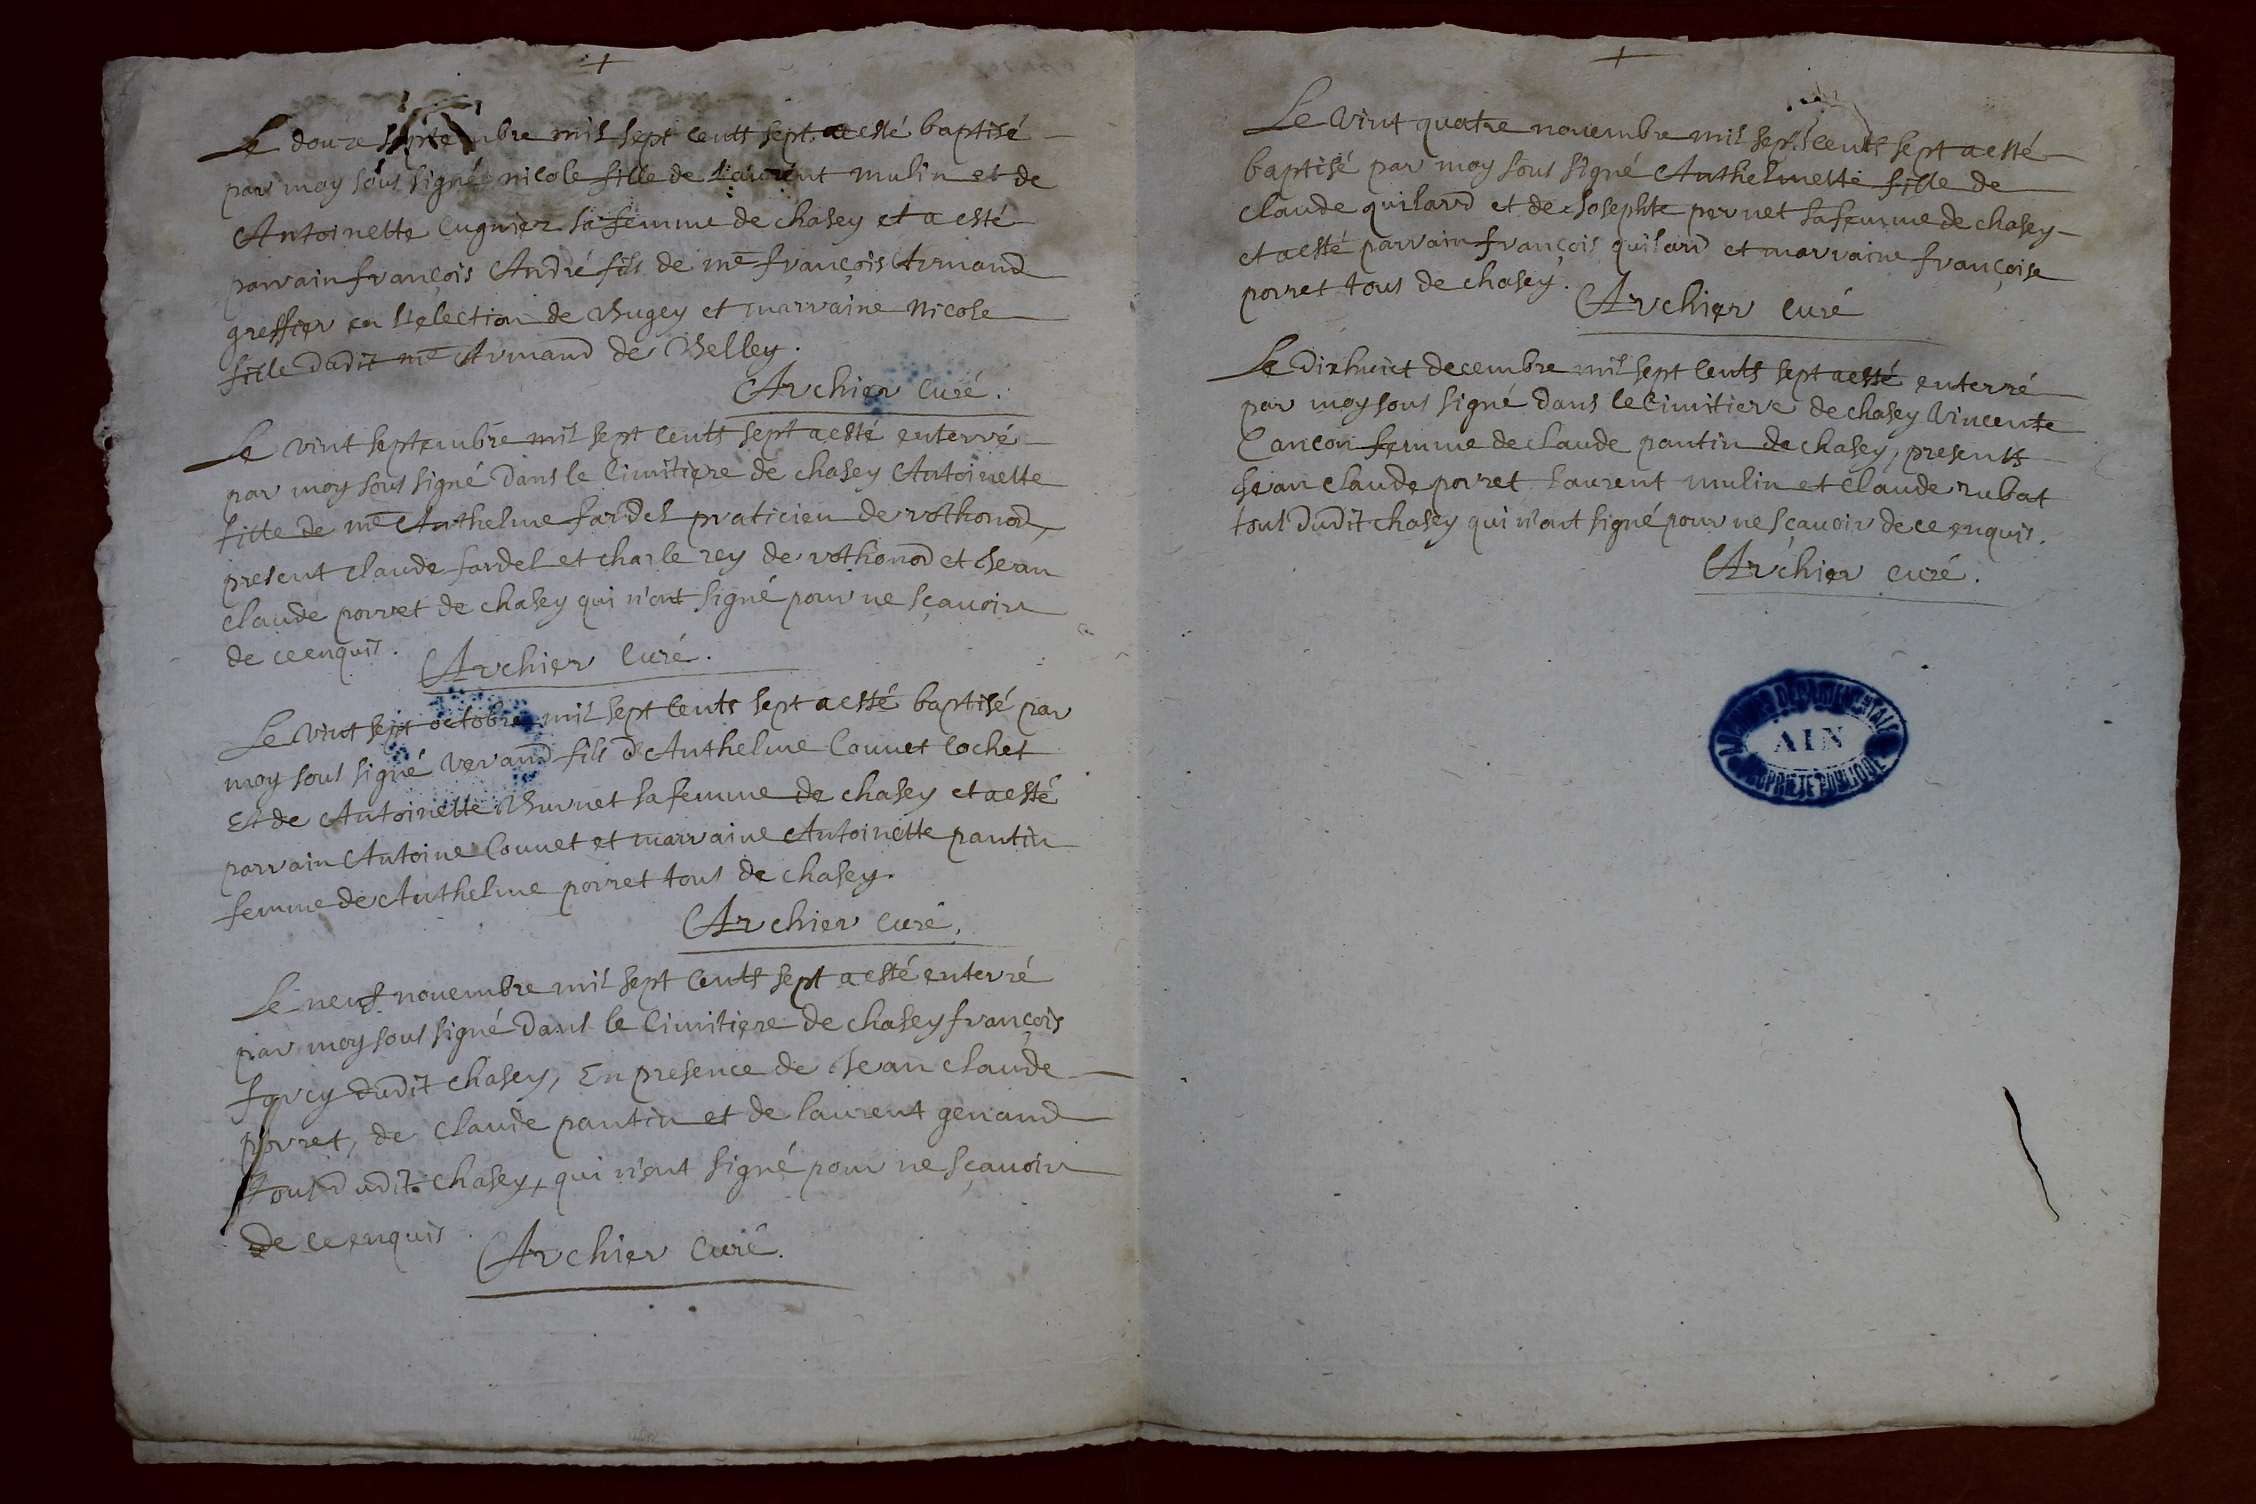 +
Le douze septembre mil sept cents sept a esté baptisé
par moy sous signé nicole fille de Laurent mulin et de
Antoinette Cugnier sa femme de chasey et a esté
parrain françois André fils de me françois Armand
greffier en l'election de Bugey et marraine Nicole
fille dudit me Armand de Belley.
Archier Curé.
Le vint septembre mil sept cents sept a esté enterré
par moy sous signé dans le Cimitiere de chasey Antoinette
fille de me Anthelme fardel praticien de rothonod,
present claude fardel et charle rey de rothonod et Jean
claude porret de chasey qui n'ont signé pour ne sçavoir
de ce enquis.
Archier Curé.
Le vint sept octobre mil sept cents sept a esté baptisé par
moy sous signé verand fils d'Anthelme Connet Cochet
Et de Antoinette Burnet sa femme de chasey et a esté
parrain Antoine Connet et marraine Antoinette pantin
femme de Anthelme porret tous de chasey.
Archier Curé.
Le neuf novembre mil sept cents sept a esté enterré
par moy sous signé dans le Cimitiere de chasey françois
forcy dudit chasey, En presence de Jean claude
porret, de claude pantin et de laurent genand
tous dudit chasey, qui n'ont signé pour ne sçavoir
de ce enquis
Archier Curé.
+
Le vint quatre novembre mil sept cents sept a esté
baptisé par moy sous signé Anthelmette fille de
claude quilard et de Josephte pernet sa femme de chasey
et a esté parrain françois quilard et marraine françoise
porret tous de chasey.
Archier Curé
Le dix huict decembre mil sept cents sept a esté enterré
par moy sous signé dans le Cimitiere de chasey Vincente
Cancon femme de claude pantin de chasey, presents
Jean claude porret laurent mulin et claude rubat
tous dudit chasey qui n'ont signé pour ne sçavoir de ce enquis.
Archier curé.
ARCHIVES DEPARTEMENTALES
AIN
PROPRIETE PUBLIQUE